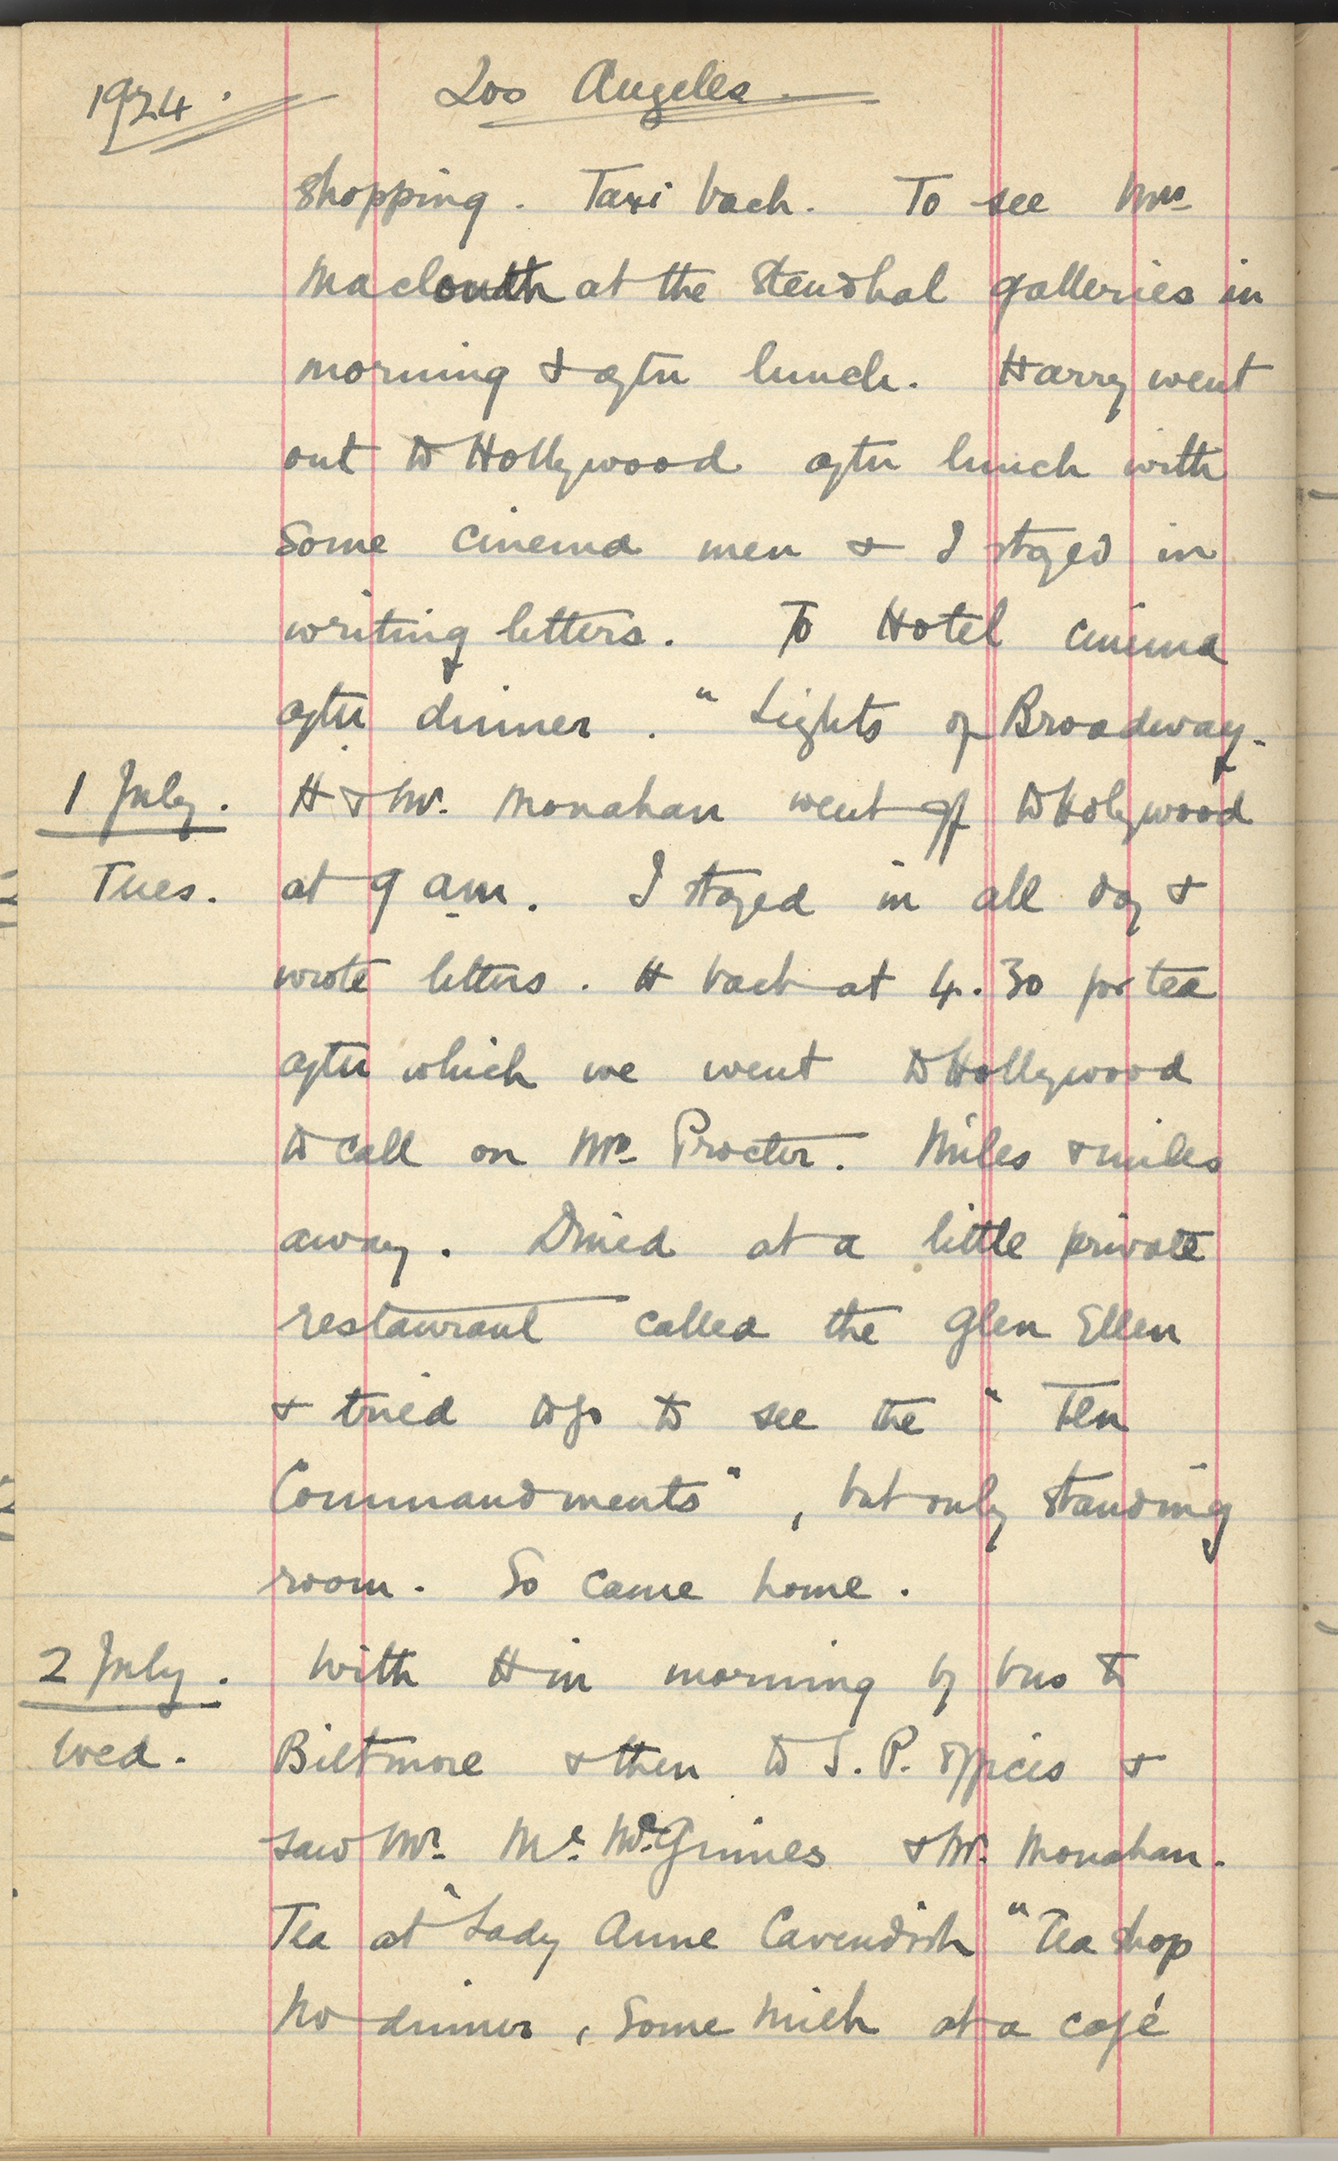 1924. Los Angeles.
shopping. Taxi back. To see Mrs
at the Stendhal galleries in
morning & after lunch. Harry went
out to Hollywood after lunch with
some cinema men & I stayed in
writing letters. To Hotel cinema
after dinner. "Lights of Broadway.
1 July. H & Mr. Monahan went off to Holywood
Tues. at 9 am. I stayed in all day &
wrote letters. H back at 4.30 for tea
after which we went to Hollywood
to call on Mrs Procter. Miles & miles
away. Dined at a little private
restaurant called the Glen Ellen
& tried to go to see the "Ten
Commandments", but only standing
room. So came home.
2 July. With H in morning by bus to
Wed. Biltmore & then to S.P. offices &
saw Mr. & Mr. Monahan.
Tea at "Lady Anne Cavendish" Tea shop
No dinner, some milk at a café